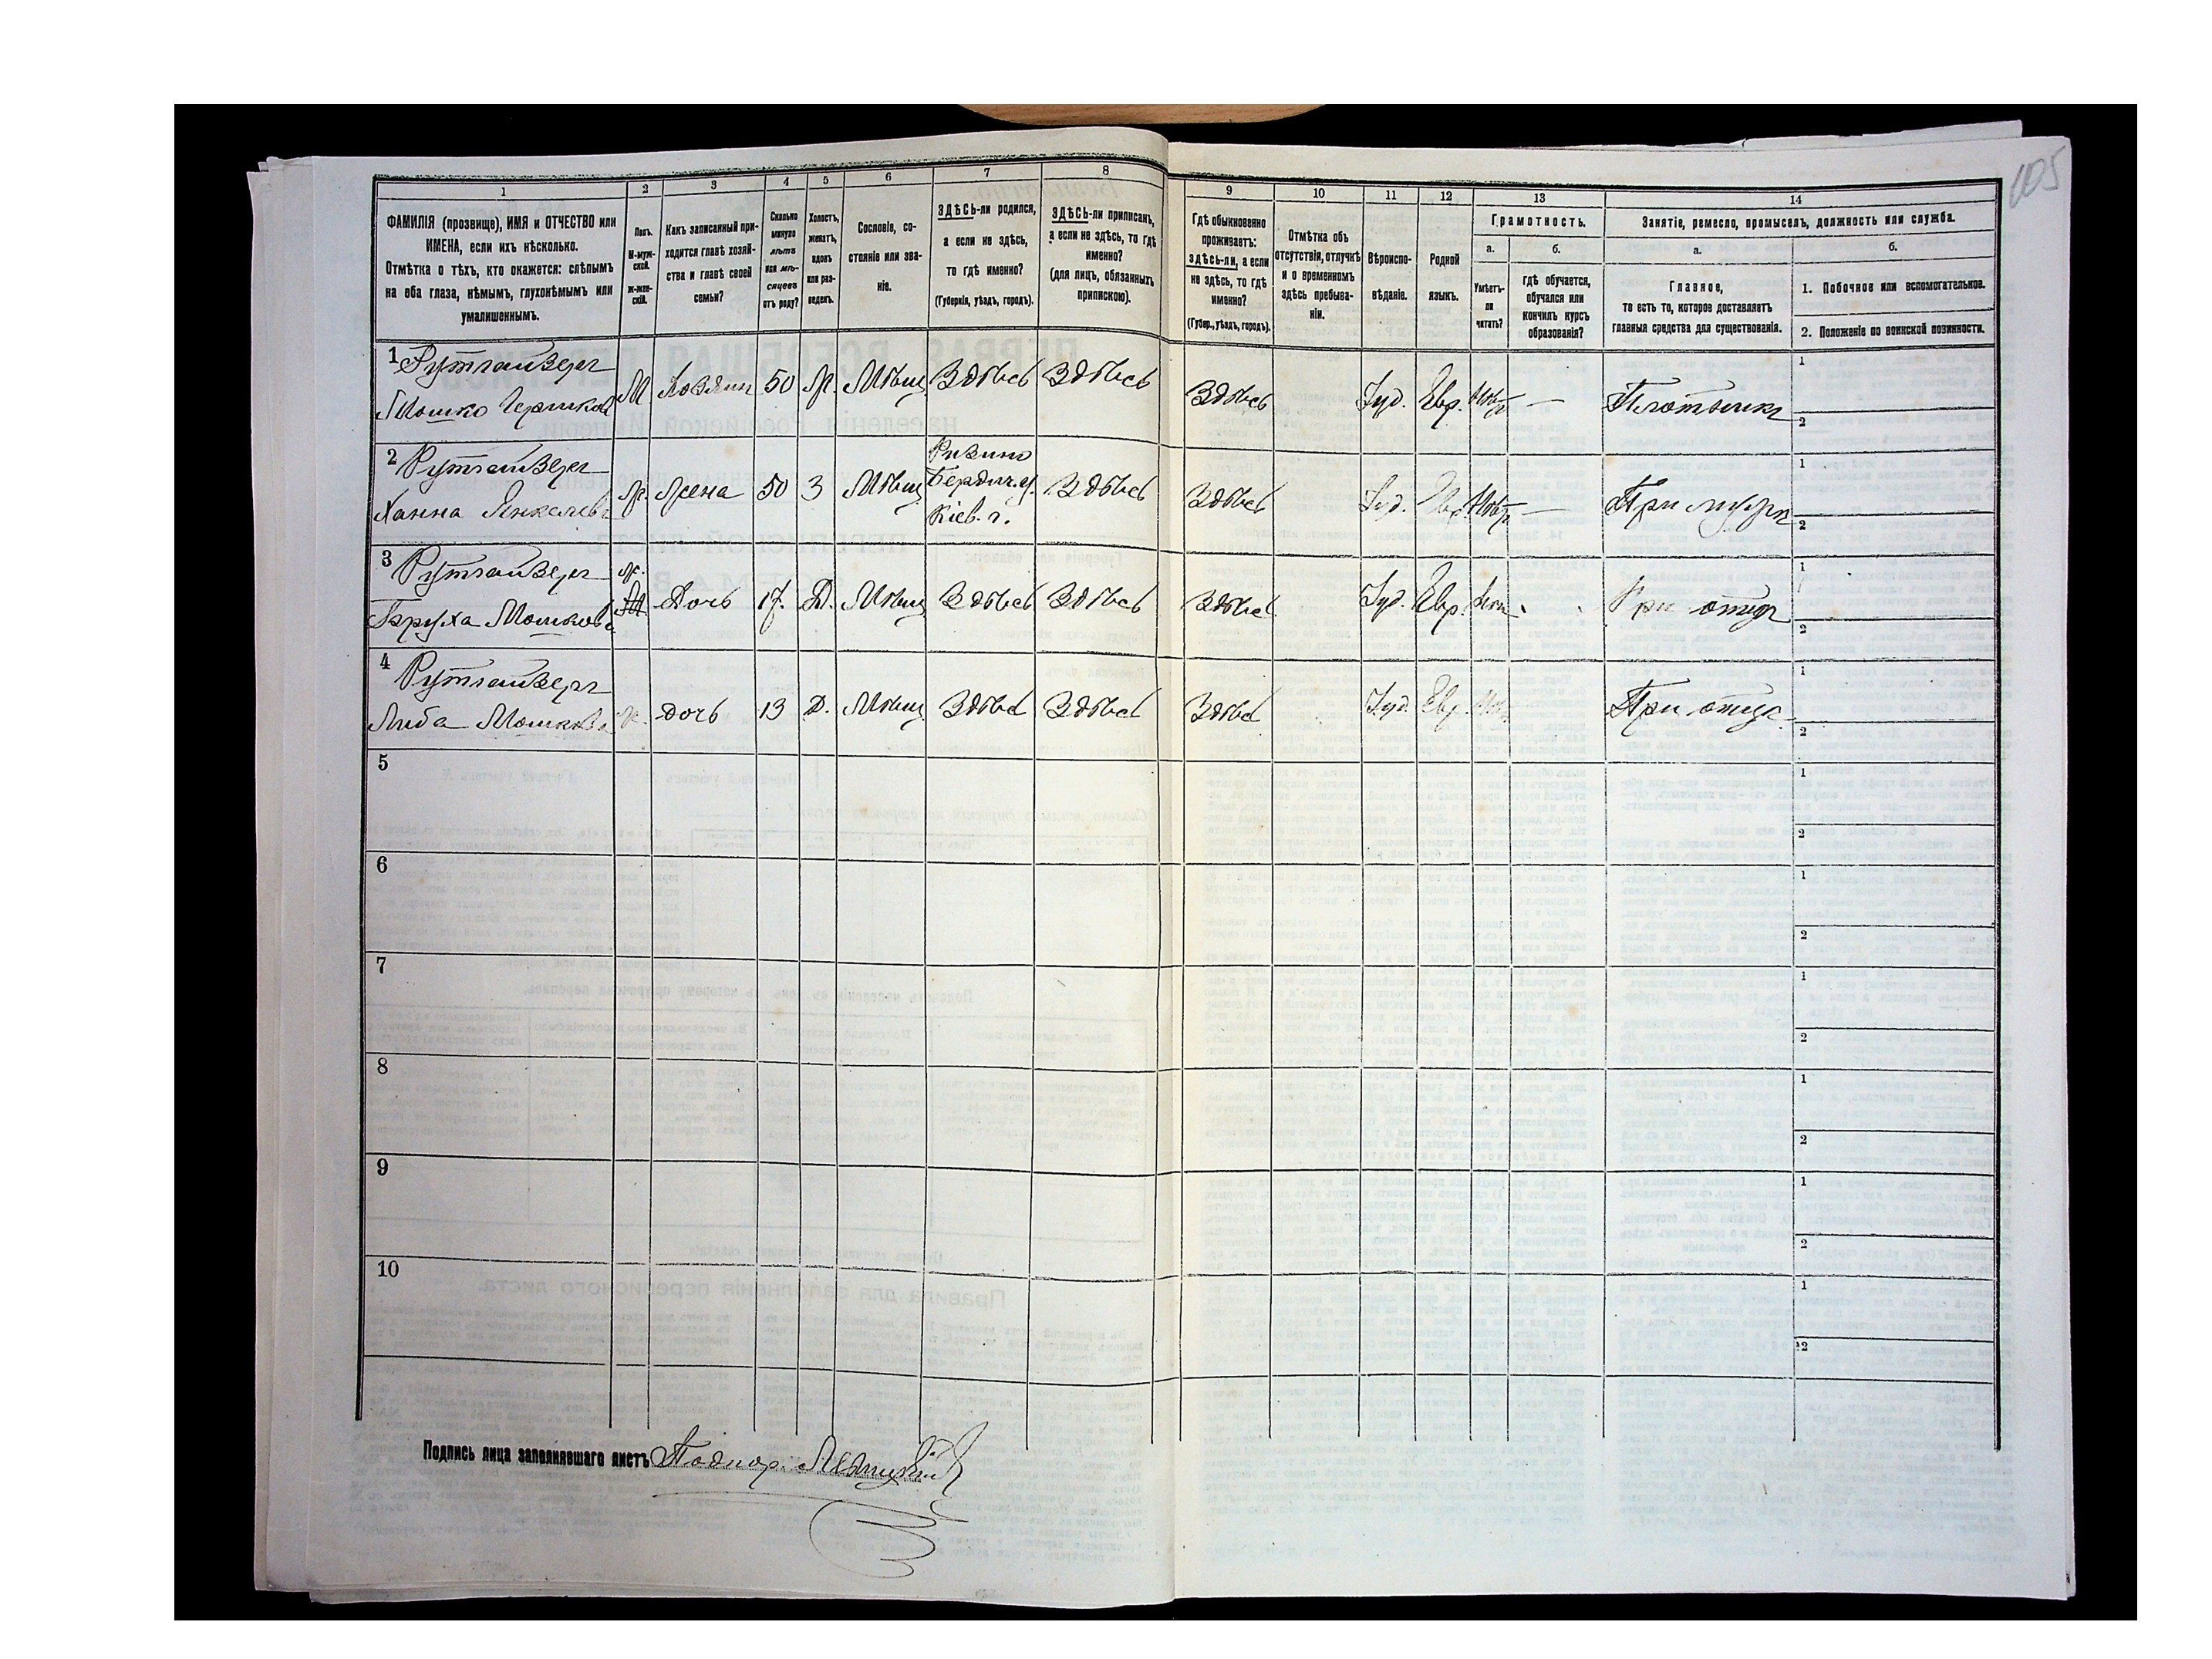 105
1 2 3 4 5 6 7 8 9 10 11 12 13 14
ФАМИЛІЯ (прозвище), ИМЯ и ОТЧЕСТВО или
ИМЕНА, если ихъ нѣсколько.
Отмѣтка о тѣхъ, кто окажется: слѣпымъ
на оба глаза, нѣмымъ, глухонѣмымъ или
умалишеннымъ.
Полъ.
М-муж-
ской.
Ж-жен-
скій.
Какъ записанный при-
ходится главѣ хозяй-
ства и главѣ своей
семьи?
Сколько
минуло
лѣтъ
или мѣ-
сяцевъ
отъ роду?
Холостъ,
женатъ,
вдовъ
или раз-
веденъ.
Сословіе, со-
стояніе или зва-
ніе.
ЗДѢСЬ-ли родился,
а если не здѣсь,
то гдѣ именно?
(Губернія, уѣздъ, городъ).
ЗДѢСЬ-ли приписанъ,
а если не здѣсь, то гдѣ
именно?
(для лицъ, обязанныхъ
припискою).
Гдѣ обыкновенно
проживаетъ:
здѣсь-ли, а если
не здѣсь, то гдѣ
именно?
(Губер., уѣздъ, городъ).
Отмѣтка объ
отсутствіи, отлучкѣ
и о временномъ
здѣсь пребыва-
ніи.
Вѣроиспо-
вѣданіе.
Родной
языкъ.
Грамотность.
а.
Умѣетъ-
ли
читать?
б.
гдѣ обучается,
обучался или
кончилъ курсъ
образованія?
Занятіе, ремесло, промыселъ, должность или служба.
а.
Главное,
то есть то, которое доставляетъ
главныя средства для существованія.
б.
1. Побочное или вспомогательное.
2. Положеніе по воинской повинности.
1 Рутгайзеръ
Мошко М Хозяин 50 Ж. Мѣщ Здѣсь Здѣсь Здѣсь Іуд. Евр. — Плотникъ 1 2
2 Рутгайзеръ
Ханна Янкелев Ж. Жена 50 З Мѣщ Бердич. у. Кіев. г. Здѣсь Здѣсь Іуд. Евр. — При мужѣ 1 2
3 Рутгайзеръ
Бруха Мошкова Ж. Дочь 17. Д. Мѣщ Здѣсь Здѣсь Здѣсь Іуд. Евр. При отцѣ 1 2
4 Рутгайзеръ
Либа Мошкова Ж. Дочь 13 Д. Мѣщ Здѣсь Здѣсь Здѣсь Іуд. Евр. При отцѣ 1 2
5 1 2
6 1 2
7 1 2
8 1 2
9 1 2
10 1 2
Подпись лица заполнявшаго листъ